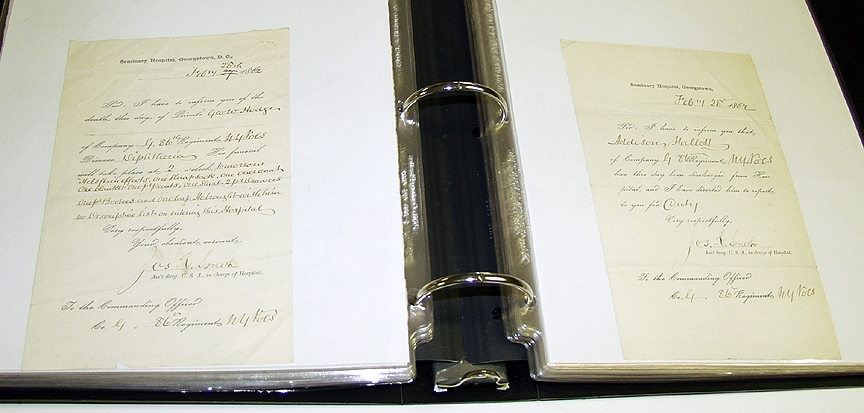 Seminary Hospital, Georgetown, D. C.,
Feby 28th 1862
Sir: I have to inform you of the
death, this day, of Private Geo W Hodge
of Company G. 86th Regiment NY Vols
Disease, Diphtheria His funeral
will take place at 2 o'clock, tomorrow
He left in effects, one Knapsack, one overcoat
One blanket One pr Pants, one Shirt - 2 prs Drawers
One pr Bootees and one Cap He brought with him
no Descriptive list on entering this Hospital
Very respectfully,
Your obedient servant,
Jos. R. Smith
Ass't Surg. U. S. A., in charge of Hospital.
To the Commanding Officer
Co. G. 86th Regiment NY Vols
Seminary Hospital, Georgetown,
Feby 28th 1862
Sir: I have to inform you that
Addison Hallett
of Company G 86th Regiment, NY Vols
has this day been discharged from Hos-
pital, and I have directed him to report
to you for Duty
Very respectfully,
Jos. R. Smith
Ass't Surg. U. S. A., in charge of Hospital.
To the Commanding Officer
Co. G. 86th Regiment, NY Vols